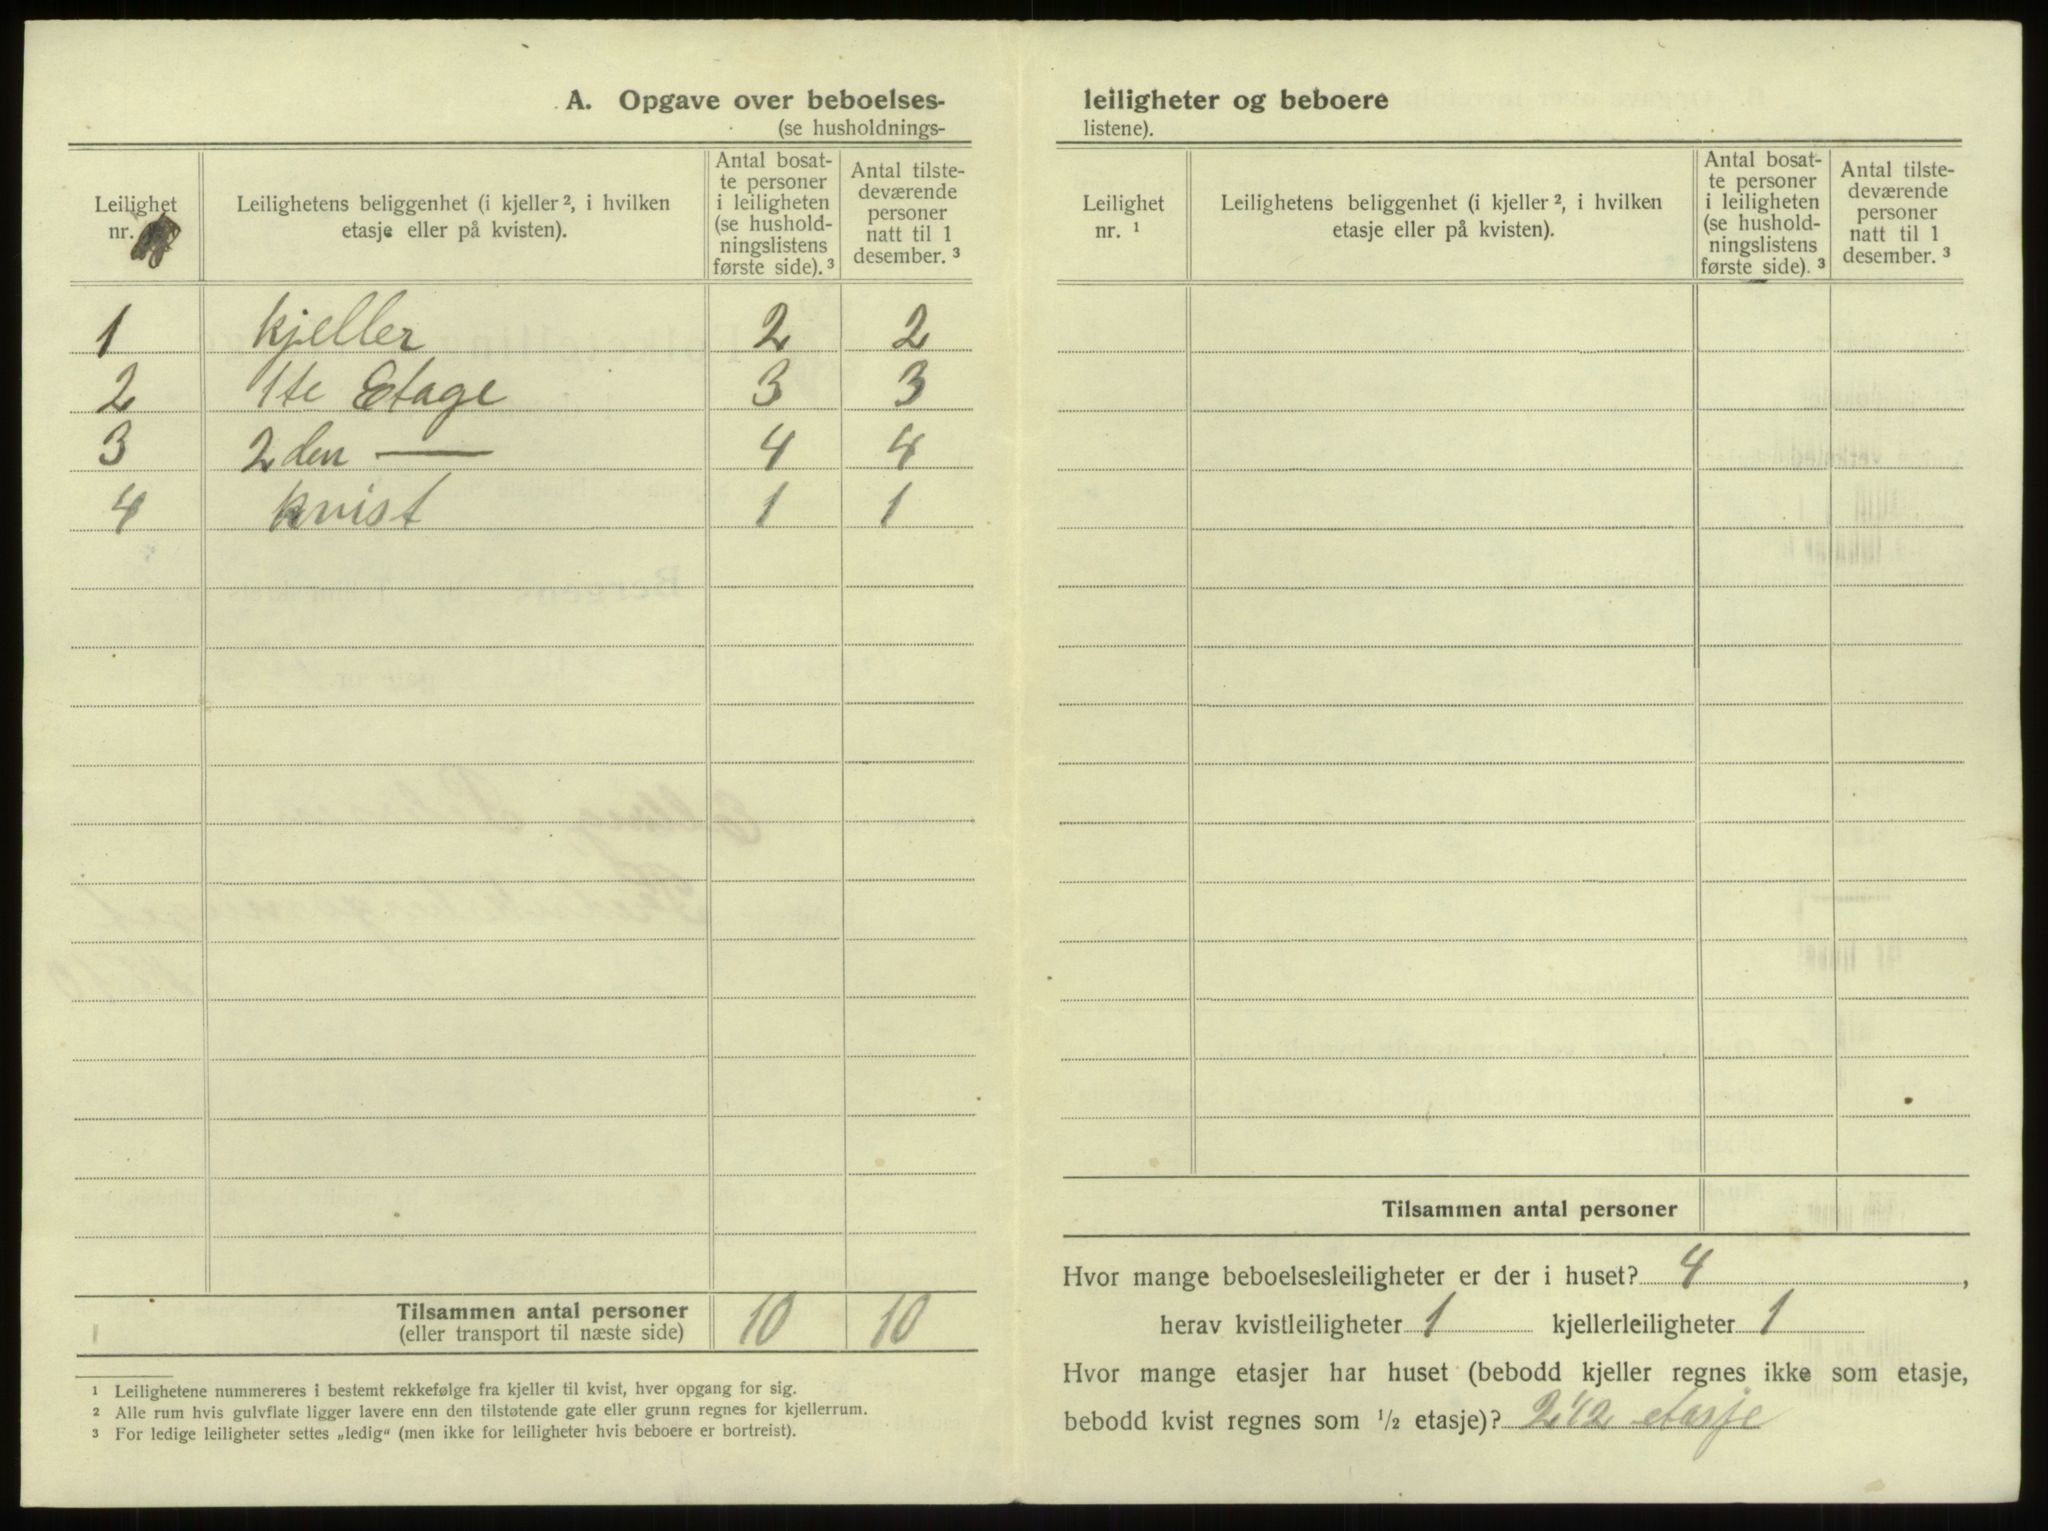 A. Opgave over beboelses-
(se husholdnings-
Leilighet
nr.
Leilighetens beliggenhet (i kjeller ², i hvilken
etasje eller på kvisten).
Antal bosat-
te personer
i leiligheten
(se hushold-
ningslistens
første side). ³
Antal tilste-
deværende
personer
natt til 1
desember. ³
1 kjeller 2 2
2 1te Etage 3 3
3 2den — 4 4
4 kvist 1 1
Tilsammen antal personer 10 10
(eller transport til næste side)
¹ Leilighetene nummereres i bestemt rekkefølge fra kjeller til kvist, hver opgang for sig.
² Alle rum hvis gulvflate ligger lavere enn den tilstøtende gate eller grunn regnes for kjellerrum.
³ For ledige leiligheter settes „ledig“ (men ikke for leiligheter hvis beboere er bortreist).
leiligheter og beboere
listene).
Leilighet
nr. ¹
Leilighetens beliggenhet (i kjeller ², i hvilken
etasje eller på kvisten).
Antal bosat-
te personer
i leiligheten
(se hushold-
ningslistens
første side). ³
Antal tilste-
deværende
personer
natt til 1
desember. ³
Tilsammen antal personer
Hvor mange beboelsesleiligheter er der i huset? 4,
herav kvistleiligheter 1 kjellerleiligheter 1
Hvor mange etasjer har huset (bebodd kjeller regnes ikke som etasje,
bebodd kvist regnes som ½ etasje)? 2 1/2 etasje